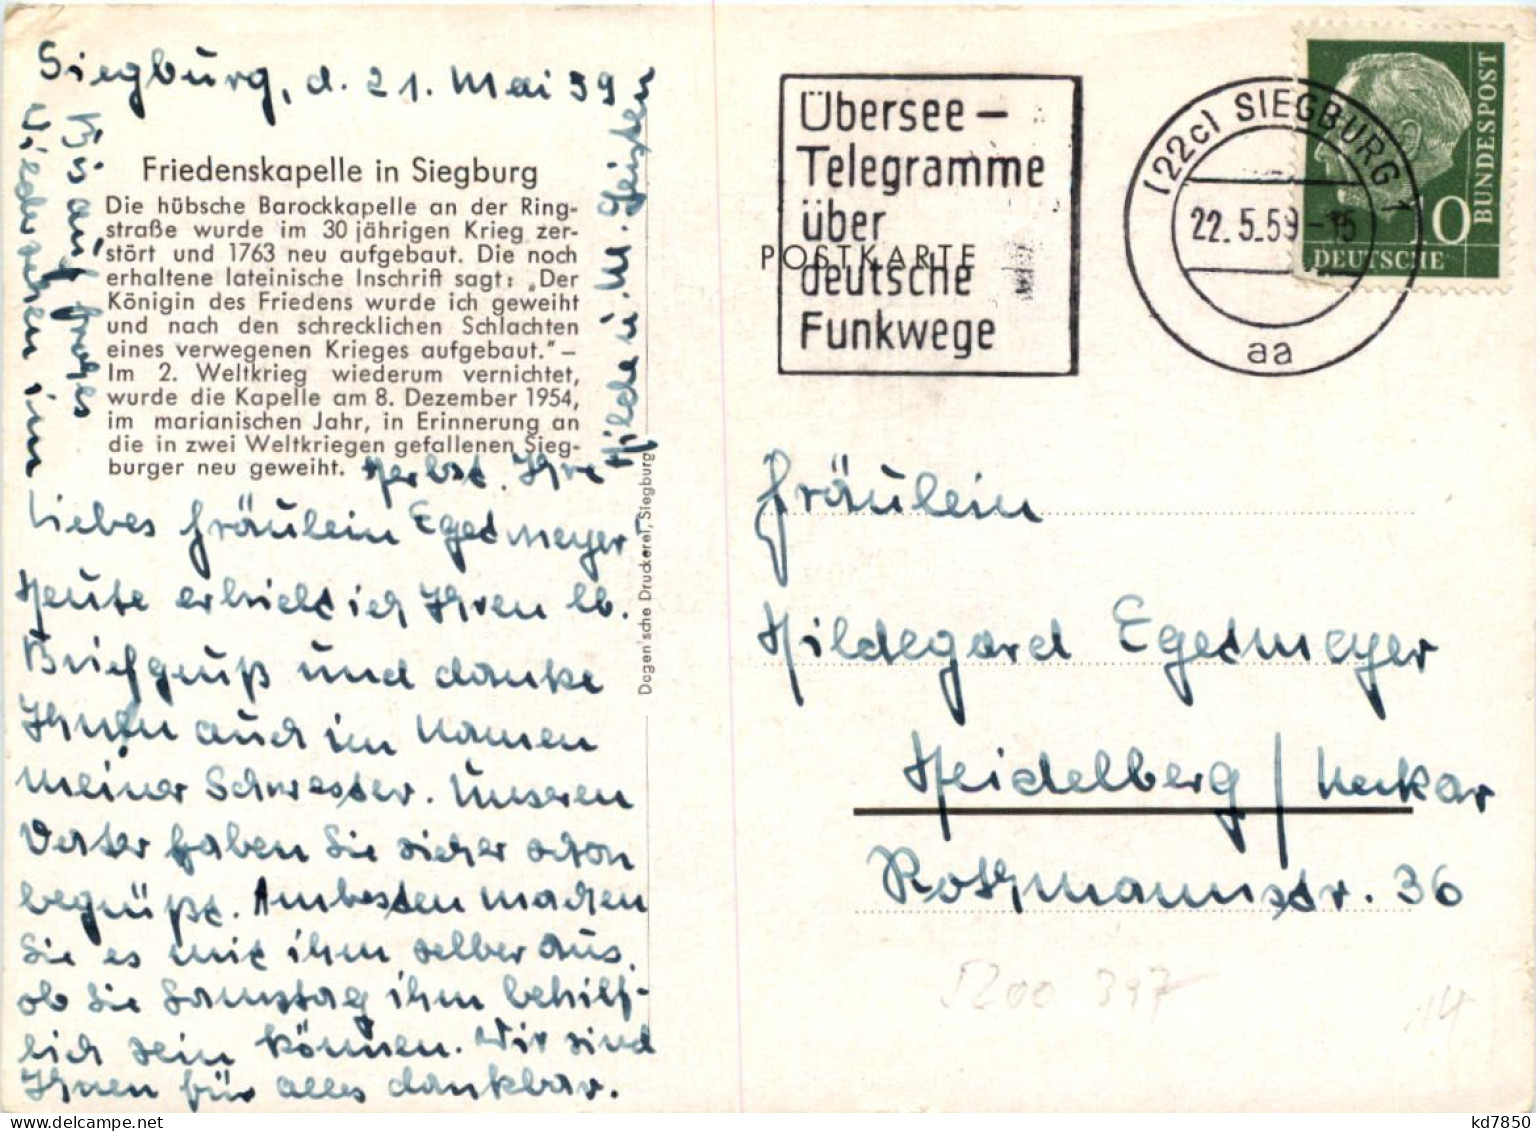 Siegburg, d. 21. Mai 59
Friedenskapelle in Siegburg
Die hübsche Barockkapelle an der Ring-
straße wurde im 30 jährigen Krieg zer-
stört und 1763 neu aufgebaut. Die noch
erhaltene lateinische Inschrift sagt: „Der
Königin des Friedens wurde ich geweiht
und nach den schrecklichen Schlachten
eines verwegenen Krieges aufgebaut.“ –
Im 2. Weltkrieg wiederum vernichtet,
wurde die Kapelle am 8. Dezember 1954,
im marianischen Jahr, in Erinnerung an
die in zwei Weltkriegen gefallenen Sieg-
burger neu geweiht.
Liebes Fräulein Egetmeyer!
Heute erhielt ich Ihren lb.
Briefgruß und danke
Ihnen auch im Namen
meiner Schwester. Unseren
Vater haben Sie sicher schon
begrüßt. Am besten machen
Sie es mit ihm selber aus,
ob Sie Samstag ihm behilf-
lich sein können. Wir sind
Ihnen für alles dankbar.
Bis auf frohes
Wiedersehen im
Herbst. Ihre
Hilde u. M.
Dagen'sche Druckerei, Siegburg
POSTKARTE
Übersee –
Telegramme
über
deutsche
Funkwege
(22c) SIEGBURG 1
22.5.59-15
aa
DEUTSCHE
BUNDESPOST
10
Fräulein
Hildegard Egetmeyer
Heidelberg / Neckar
Rothmannstr. 36
5200 397
14
kd7850